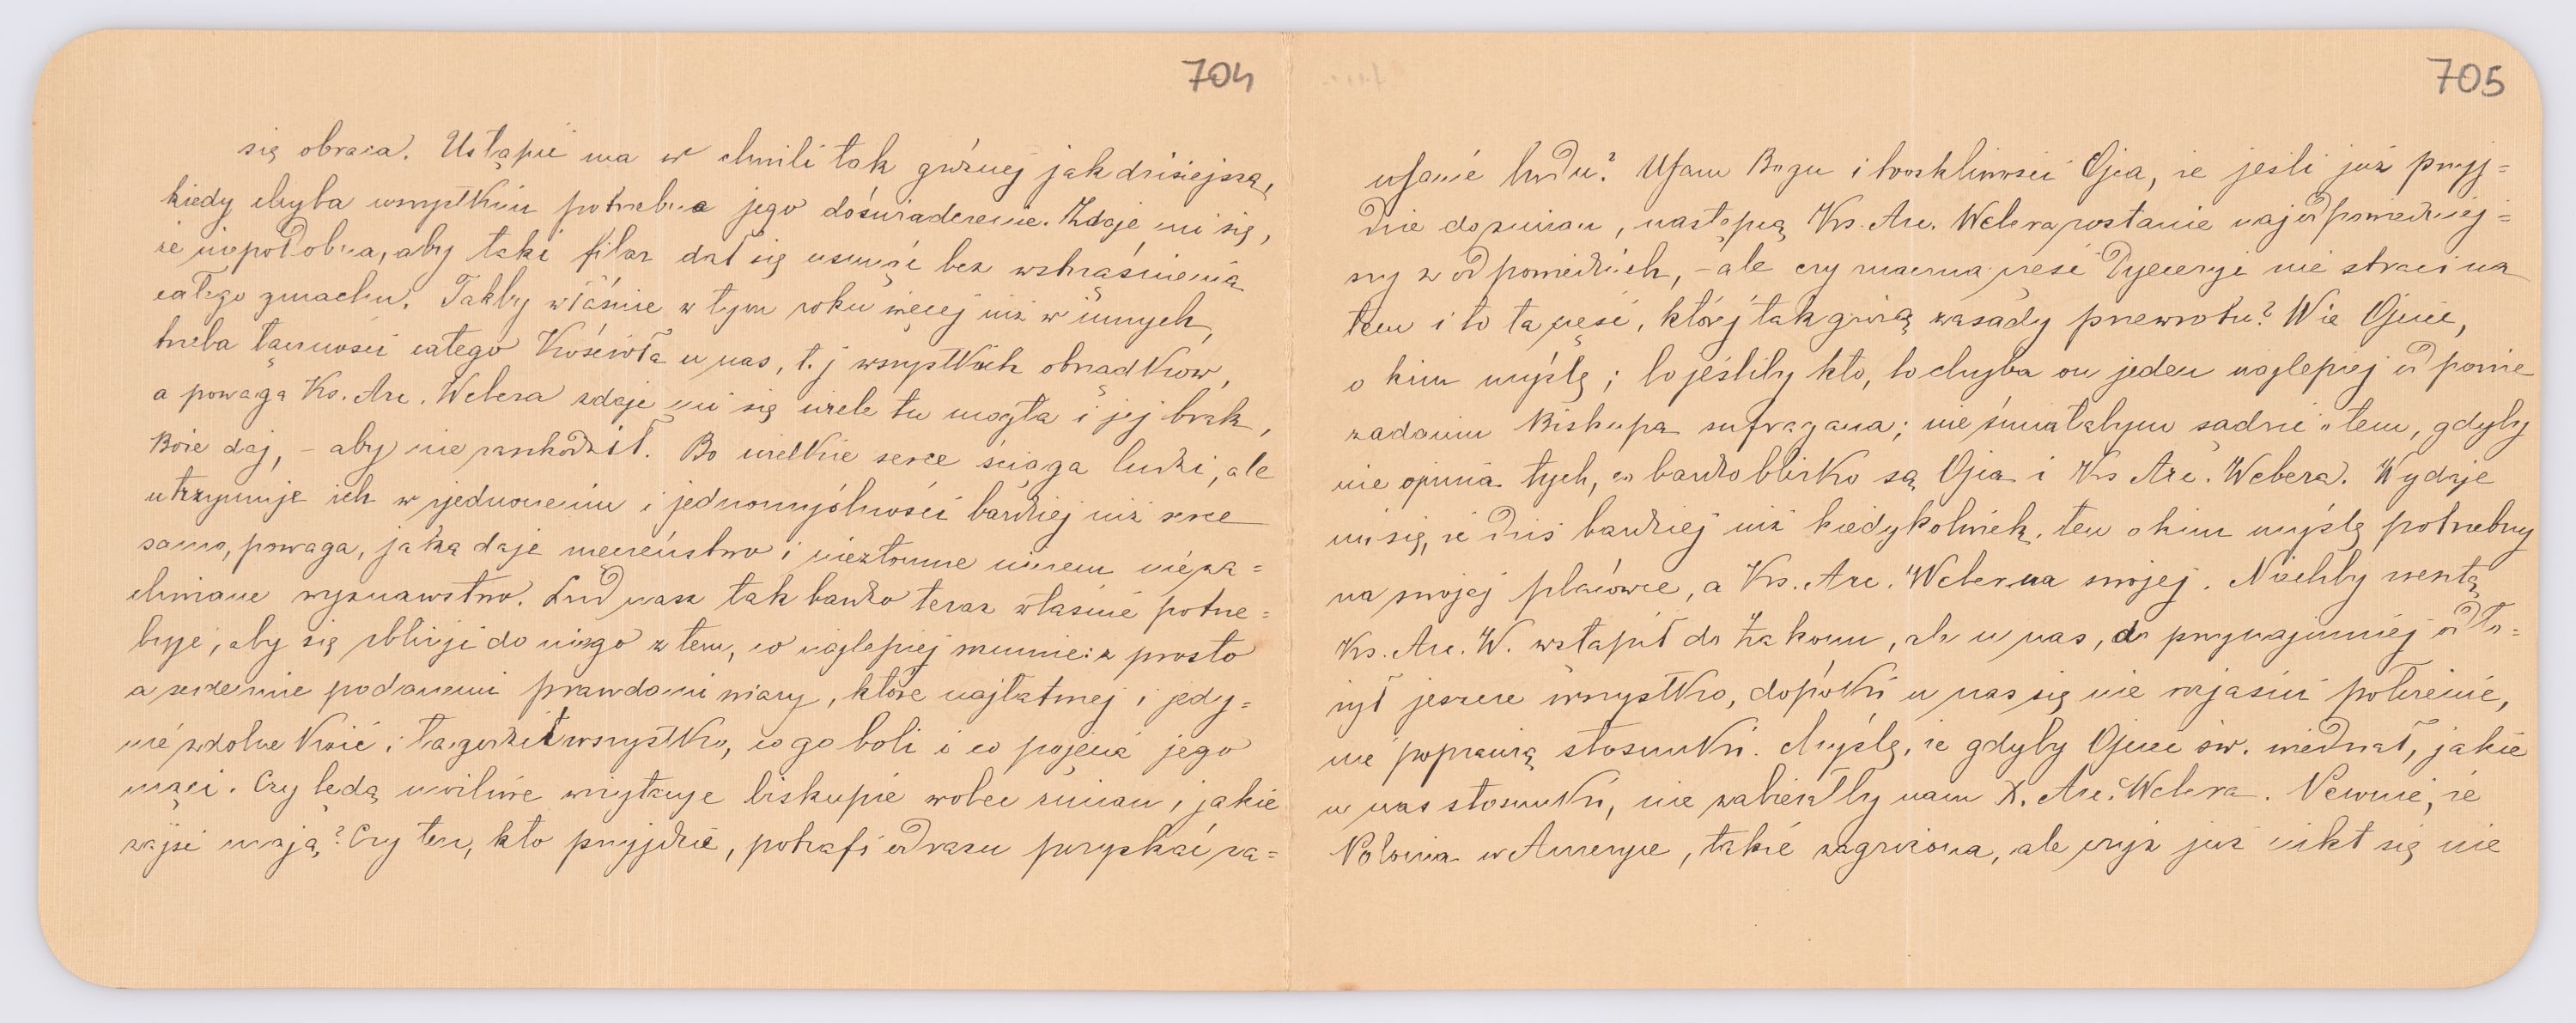 704
się obraca. Ustąpić ma w chwili tak groźnej jak dzisiejsza,
kiedy chyba wszystkim potrzebne jego doświadczenie. Zdaje mi się,
że niepodobna, aby taki filar dał się usunąć bez wstrząśnienia
całego gmachu. Takby właśnie w tym roku więcej niż w innych,
trzeba łączności całego Kościoła u nas, t.j wszystkich obrządków,
a powaga Ks. Arc. Webera zdaje mi się wiele tu mogła i jej brak,
Boże daj, – aby nie zaszkodził. Bo wielkie serce ściąga ludzi, ale
utrzymuje ich w zjednoczeniu i jednomyślności bardziej niż serce
samo, powaga, jaką daje męczeństwo i niezłomne niczem nieza=
chwiane wyznawstwo. Lud nasz tak bardzo teraz właśnie potrze=
buje, aby się zbliżyć do niego z tem, co najlepiej rozumie: z prosto
a serdecznie podanemi prawdami wiary, które najłatwiej i jedy=
nie zdolne koić i łagodzić wszystko, co go boli i co pojęcia jego
mąci. Czy będą możliwe wizytacye biskupie wobec zmian, jakie
zajść mają? Czy ten, kto przyjdzie, potrafi odrazu pozyskać za=
705
ufanie ludu? Ufam Bogu i troskliwości Ojca, że jeśli już przyj=
dzie do zmian, następcą Ks. Arc. Webera zostanie najodpowiedniej=
szy z odpowiednich, – ale czy znaczna część Dyecezyi nie straci na
tem i to ta część, której tak grożą zasady przewrotu? Wie Ojciec,
o kim myślę; bo jeśliby kto, to chyba on jeden najlepiej odpowie
zadaniu Biskupa sufragana; nie śmiałabym sądzić o tem, gdyby
nie opinia tych, co bardzo blisko są Ojca i Ks Arc. Webera. Wydaje
mi się, że dziś bardziej niż kiedykolwiek, ten o kim myślę potrzebny
na swojej placówce, a Ks. Arc. Weber na swojej. Niechby zresztą
Ks. Arc. W. wstąpił do Zakonu, ale u nas, a przynajmniej odło=
żył jeszcze wszystko, dopóki u nas się nie wyjaśni położenie,
nie poprawią stosunki. Myślę, że gdyby Ojciec św. wiedział, jakie
u nas stosunki, nie zabierałby nam X. Arc. Webera. Pewnie, że
Polonia w Ameryce, także zagrożona, ale czyż już nikt się nie